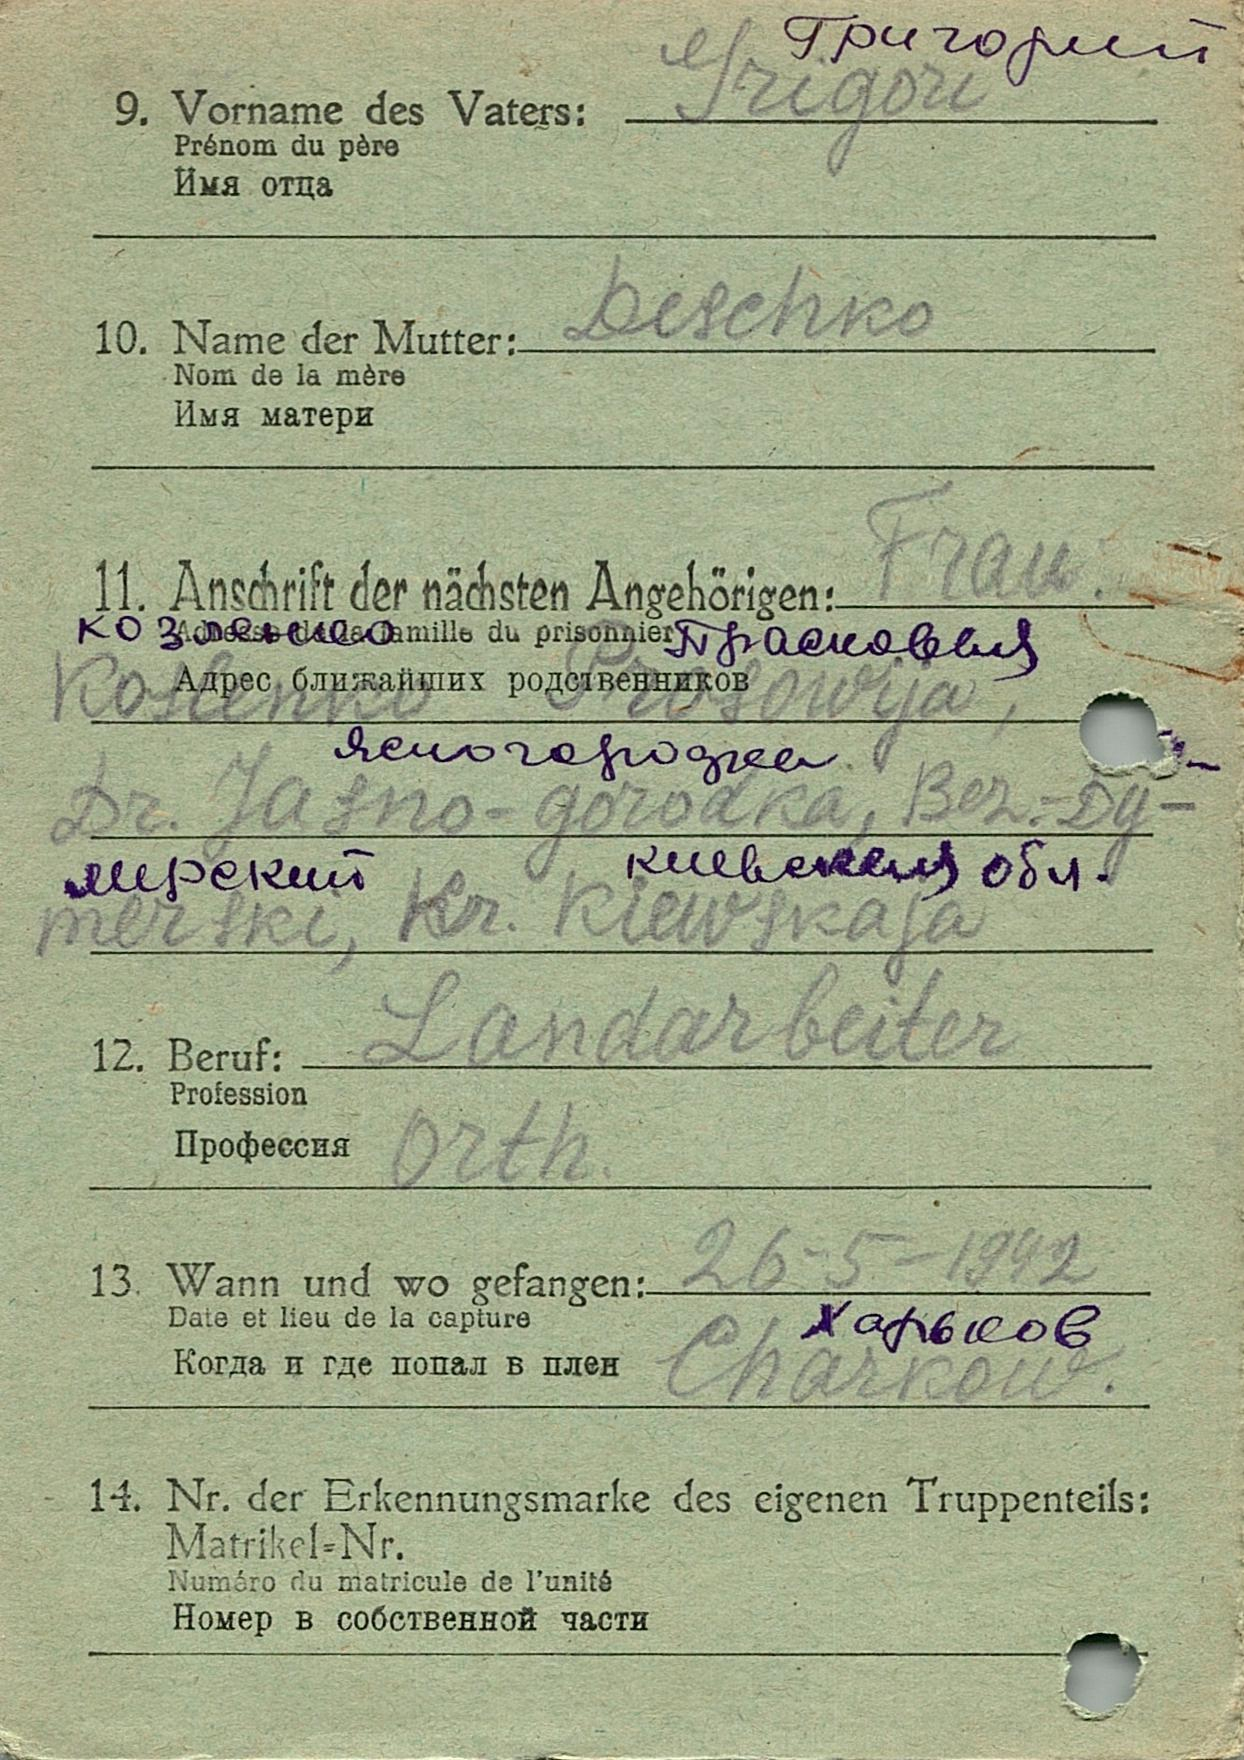 Григорий
9. Vorname des Vaters: Grigori
Prénom du père
Имя отца
10. Name der Mutter: Deschko
Nom de la mère
Имя матери
11. Anschrift der nächsten Angehörigen: Frau.
Козленко Прасковья
Adresse de la famille du prisonnier
Адрес ближайших родственников
Koslenko Prosowija,
Ясногородка
Dr. Jasno-gorodka, Bez.-Dy-
мирский киевская обл.
merski, Kr. Kiewskaja
12. Beruf: Landarbeiter
Profession
Профессия orth.
13. Wann und wo gefangen: 26-5-1942
Date et lieu de la capture
Харьков
Когда и где попал в плен Charkow.
14. Nr. der Erkennungsmarke des eigenen Truppenteils:
Matrikel=Nr.
Numéro du matricule de l'unité
Номер в собственной части